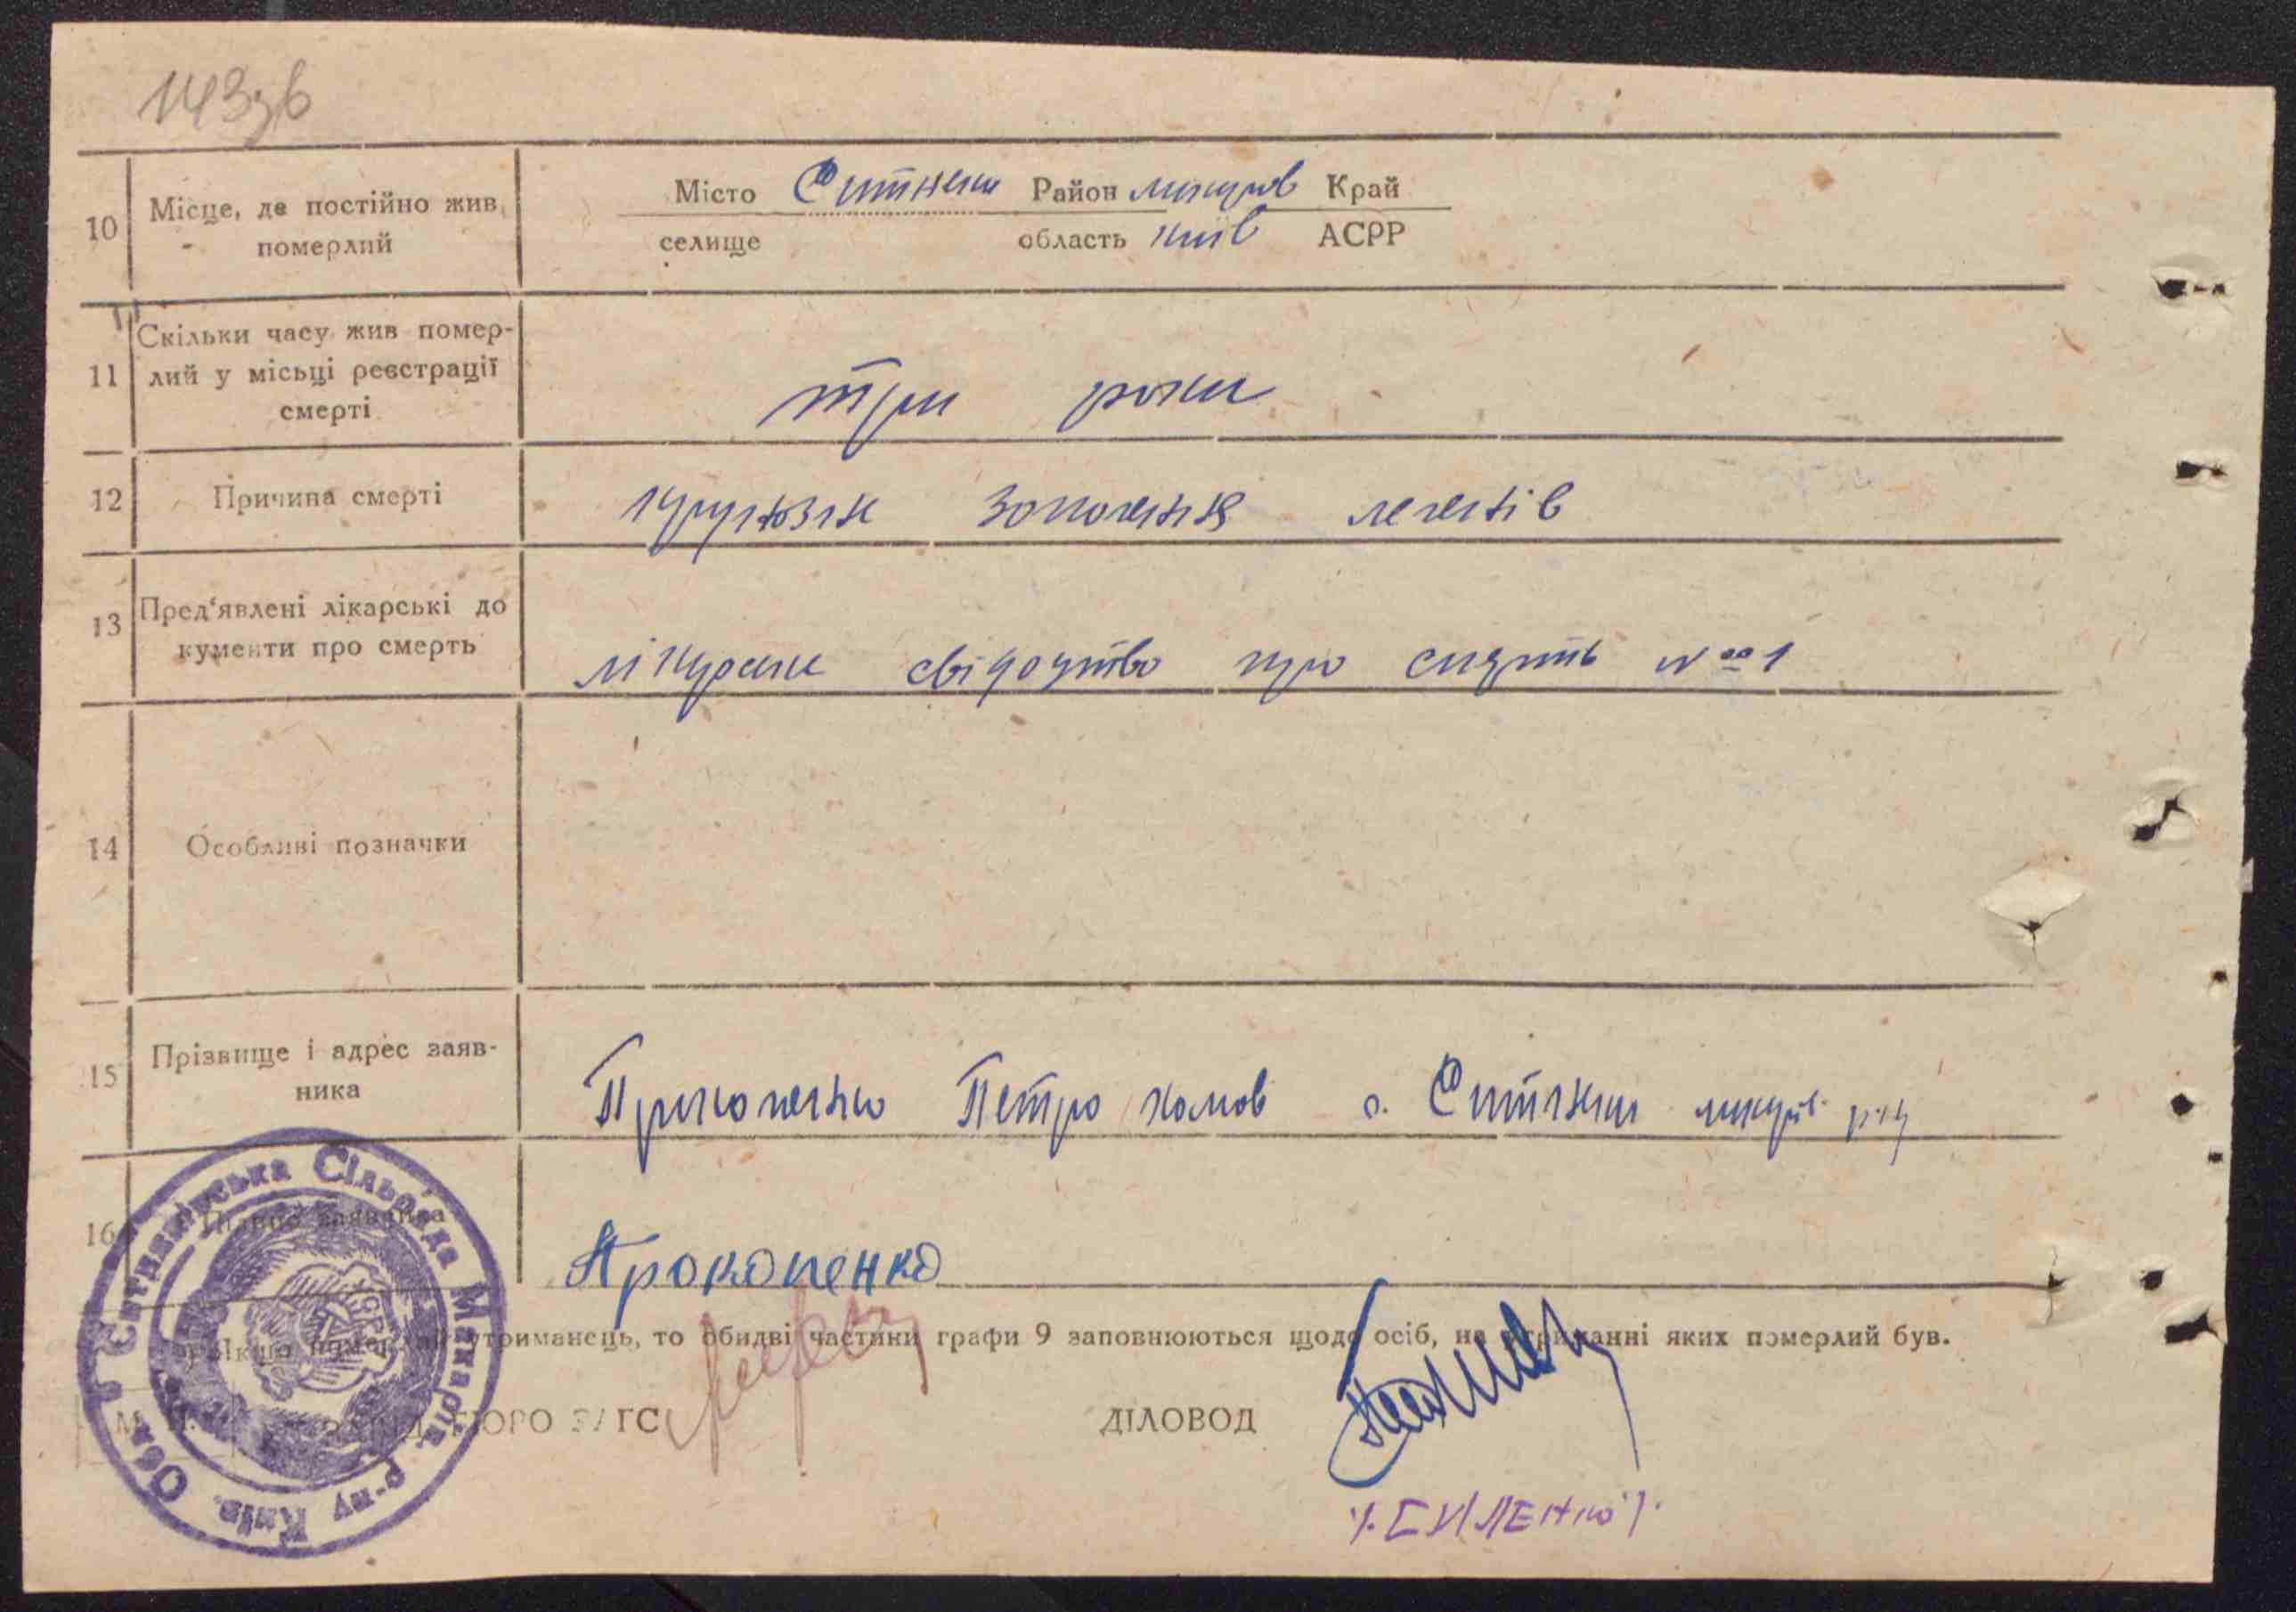 143зв
10 Місце, де постійно жив померлий Місто Ситняки Район макарів Край
селище область київ АСРР
11 Скільки часу жив помер-
лий у місьці реєстрації
смерті
три роки
12 Причина смерті запалення легенів
13 Пред'явлені лікарські до
кументи про смерть
лікарске свідоцтво про смерть № 1
14 Особливі позначки
15 Прізвище і адрес заяв-
ника
Прокопенко Петро хомов с. Ситняки макарів р-ну
16 Підпис заявника
Прокопенко
*) Якщо померлий утриманець, то обидві частини графи 9 заповнюються щодо осіб, на утриманні яких померлий був.
М. П. ЗАВІД. БЮРО ЗАГС ДІЛОВОД
Ситняківська Сільрада Макарів. р-ну Київ. Обл.